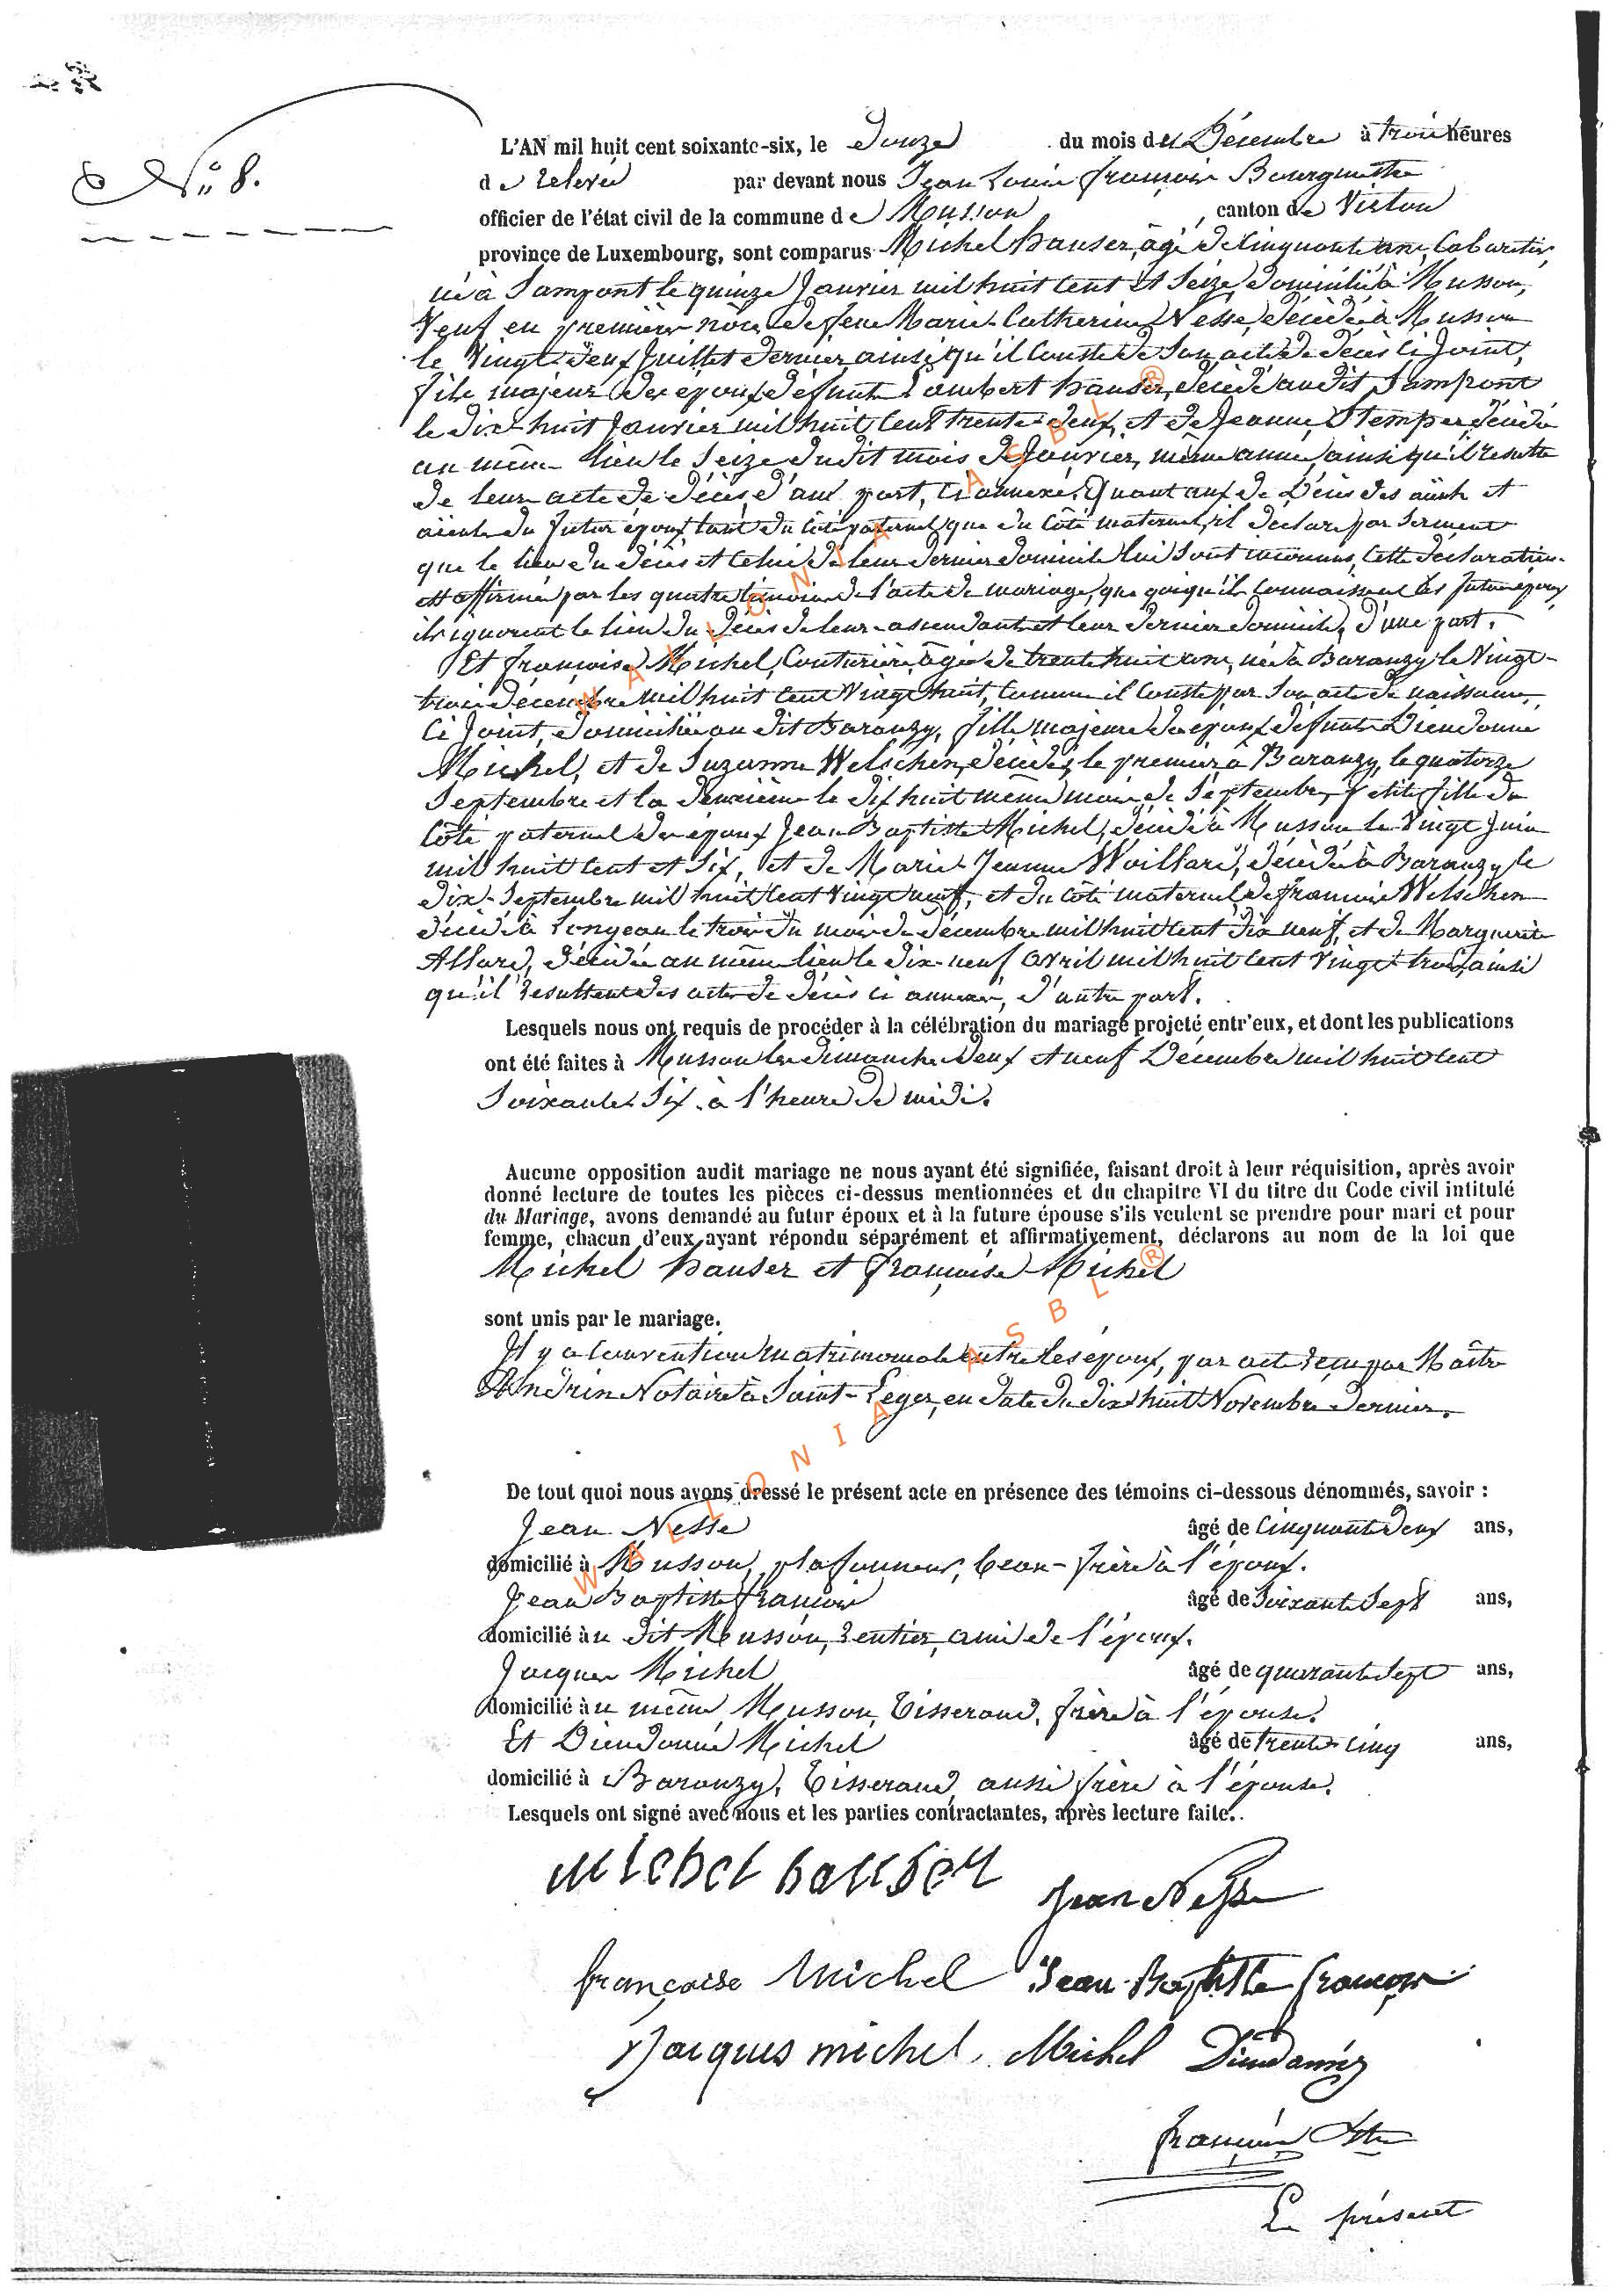 N° 8.
L'AN mil huit cent soixante-six, le Douze du mois de Décembre à trois heures
de relevée par devant nous Jean Louis françois Bourguette
officier de l'état civil de la commune de Musson canton de Virton
province de Luxembourg, sont comparus Michel hauser, âgé de Cinquante ans, Cabaretier,
né à Sampont le quinze Janvier mil huit cent et Seize, domicilié à Musson,
Veuf en premières nôces de feue Marie-Catherine Nesse, décédée à Musson
le Vingt deux Juillet dernier ainsi qu'il Conste de Son acte de décès Ci Joint,
fils majeur des époux défunts Lambert hauser, décédé audit Sampont
le dix-huit Janvier mil huit Cent trente-deux, et de Jeanne Stemper décédée
au même lieu le Seize dudit mois de Janvier, même année, ainsi qu'il resulte
de leurs actes de décès d'une part, Ci annexés, Quant aux de Décès des aïeuls et
aïeules du futur époux tant du Côté paternel que du Côté maternel, il déclare par Serment
que le lieu du décès et Celui de leur dernier domicile lui Sont inconnus, Cette déclaration
est affirmée par les quatre témoins de l'acte de mariage, que quoiqu'ils Connaissent les futurs époux
ils ignorent le lieu du décès de leurs ascendants et leur dernier domicile, d'une part.
Et françoise Michel, Couturière, âgée de trente huit ans, née à Baranzy le Vingt-
trois décembre mil huit Cent Vingt huit, Comme il Conste par Son acte de naissance,
Ci Joint, domiciliée au dit Baranzy, fille majeure des époux défunts Dieudonné
Michel, et de Suzanne Welschen, décédés, le premier à Baranzy, le quatorze
Septembre et la deuxième le dix huit même mois de Septembre, petite fille du
Côté paternel des époux Jean Baptiste Michel, décédé à Musson le Vingt Juin
mil huit Cent et Six, et de Marie Jeanne Woillard, décédée à Baranzy le
dix Septembre mil huit Cent Vingt neuf, et du Côté maternel de françois Welschen
décédé à Longeau le trois du mois de décembre mil huit Cent dix neuf, et de Marguerite
Allard, décédée au même lieu le dix-neuf avril mil huit Cent Vingt trois, ainsi
qu'il resultent des actes de décès Ci annexés, d'autre part.
Lesquels nous ont requis de procéder à la célébration du mariage projeté entr'eux, et dont les publications
ont été faites à Musson les dimanches deux et neuf Décembre mil huit Cent
Soixante Six à l'heure de midi.
Aucune opposition audit mariage ne nous ayant été signifiée, faisant droit à leur réquisition, après avoir
donné lecture de toutes les pièces ci-dessus mentionnées et du chapitre VI du titre du Code civil intitulé
du Mariage, avons demandé au futur époux et à la future épouse s'ils veulent se prendre pour mari et pour
femme, chacun d'eux ayant répondu séparément et affirmativement, déclarons au nom de la loi que
Michel hauser et françoise Michel
sont unis par le mariage.
Il y a Convention matrimoniale entre les époux, par acte reçu par Maître
Andrin Notaire à Saint-Léger, en date du dix huit Novembre dernier.
De tout quoi nous avons dressé le présent acte en présence des témoins ci-dessous dénommés, savoir :
Jean Nesse âgé de Cinquante deux ans,
domicilié à Musson, plafonneur, beau-frère à l'époux.
Jean Baptiste françois âgé de Soixante Sept ans,
domicilié àu dit Musson, rentier, ami de l'époux.
Jacques Michel âgé de quarante Sept ans,
domicilié àu même Musson, tisserand, frère à l'épouse.
Et Dieudonné Michel âgé de trente cinq ans,
domicilié à Baranzy, tisserand, aussi frère à l'épouse.
Lesquels ont signé avec nous et les parties contractantes, après lecture faite.
Michel hauser
Jean Nesse
françoise Michel Jean-Baptiste françois
Jacques michel Michel Dieudonnéz
Le présent
WALLONIA ASBL ®
WALLONIA ASBL ®